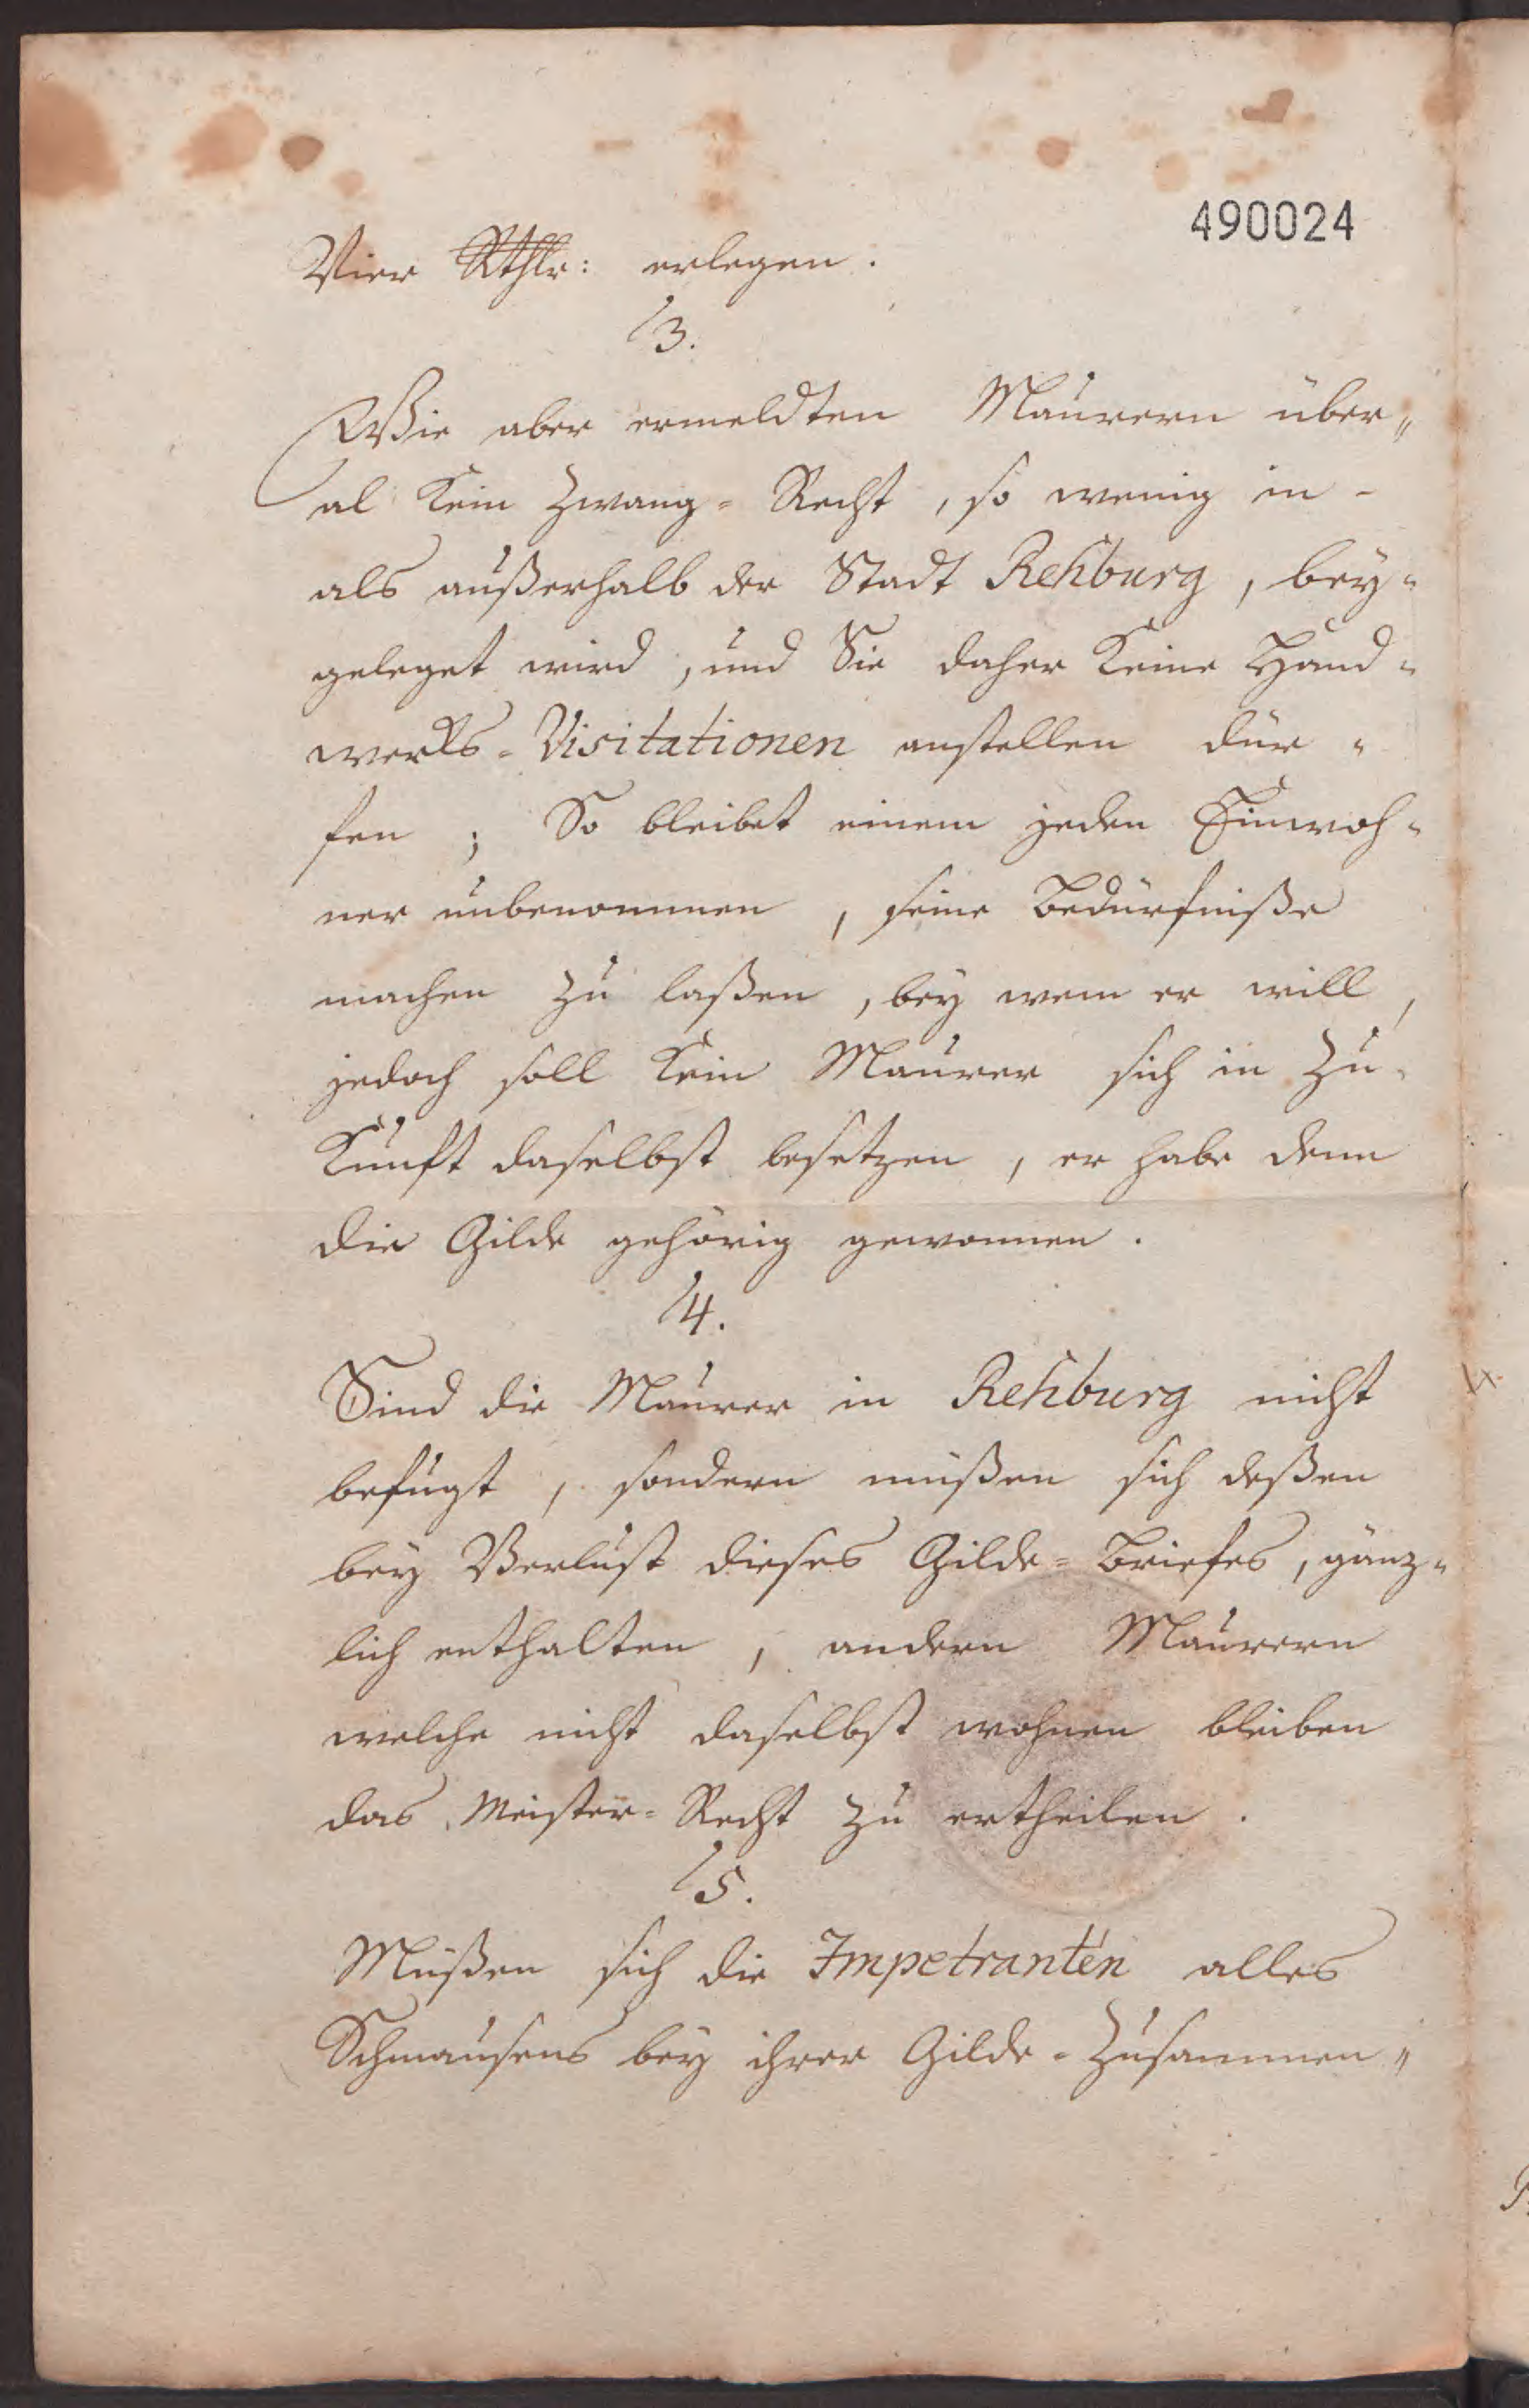 490024
Vier Rthlr: erlegen.
13.
Wie aber ermeldten Maurern über„
al kein Zwang-Recht, so wenig in-
als außerhalb der Stadt Rehburg, bey-
geleget wird, und Sie daher keine Hand-
werks-Visitationen anstellen dür-
fen; So bleibet einem jeden Einwoh-
ner unbenommen, seine Bedürfniße
machen zu laßen, bey wem er will,
jedoch soll kein Maurer sich in Zu-
kunft daselbst besetzen, er habe denn
die Gilde gehörig gewonnen.
14.
Sind die Maurer in Rehburg nicht
befugt, sondern müßen sich deßen
bey Verlust dieses Gilde-Briefes, gänz-
lich enthalten, andern Maurern
welche nicht daselbst wohnen bleiben
das Meister-Recht zu ertheilen.
15.
Müßen sich die Impetranten alles
Schmausens bey ihrer Gilde-Zusammen„